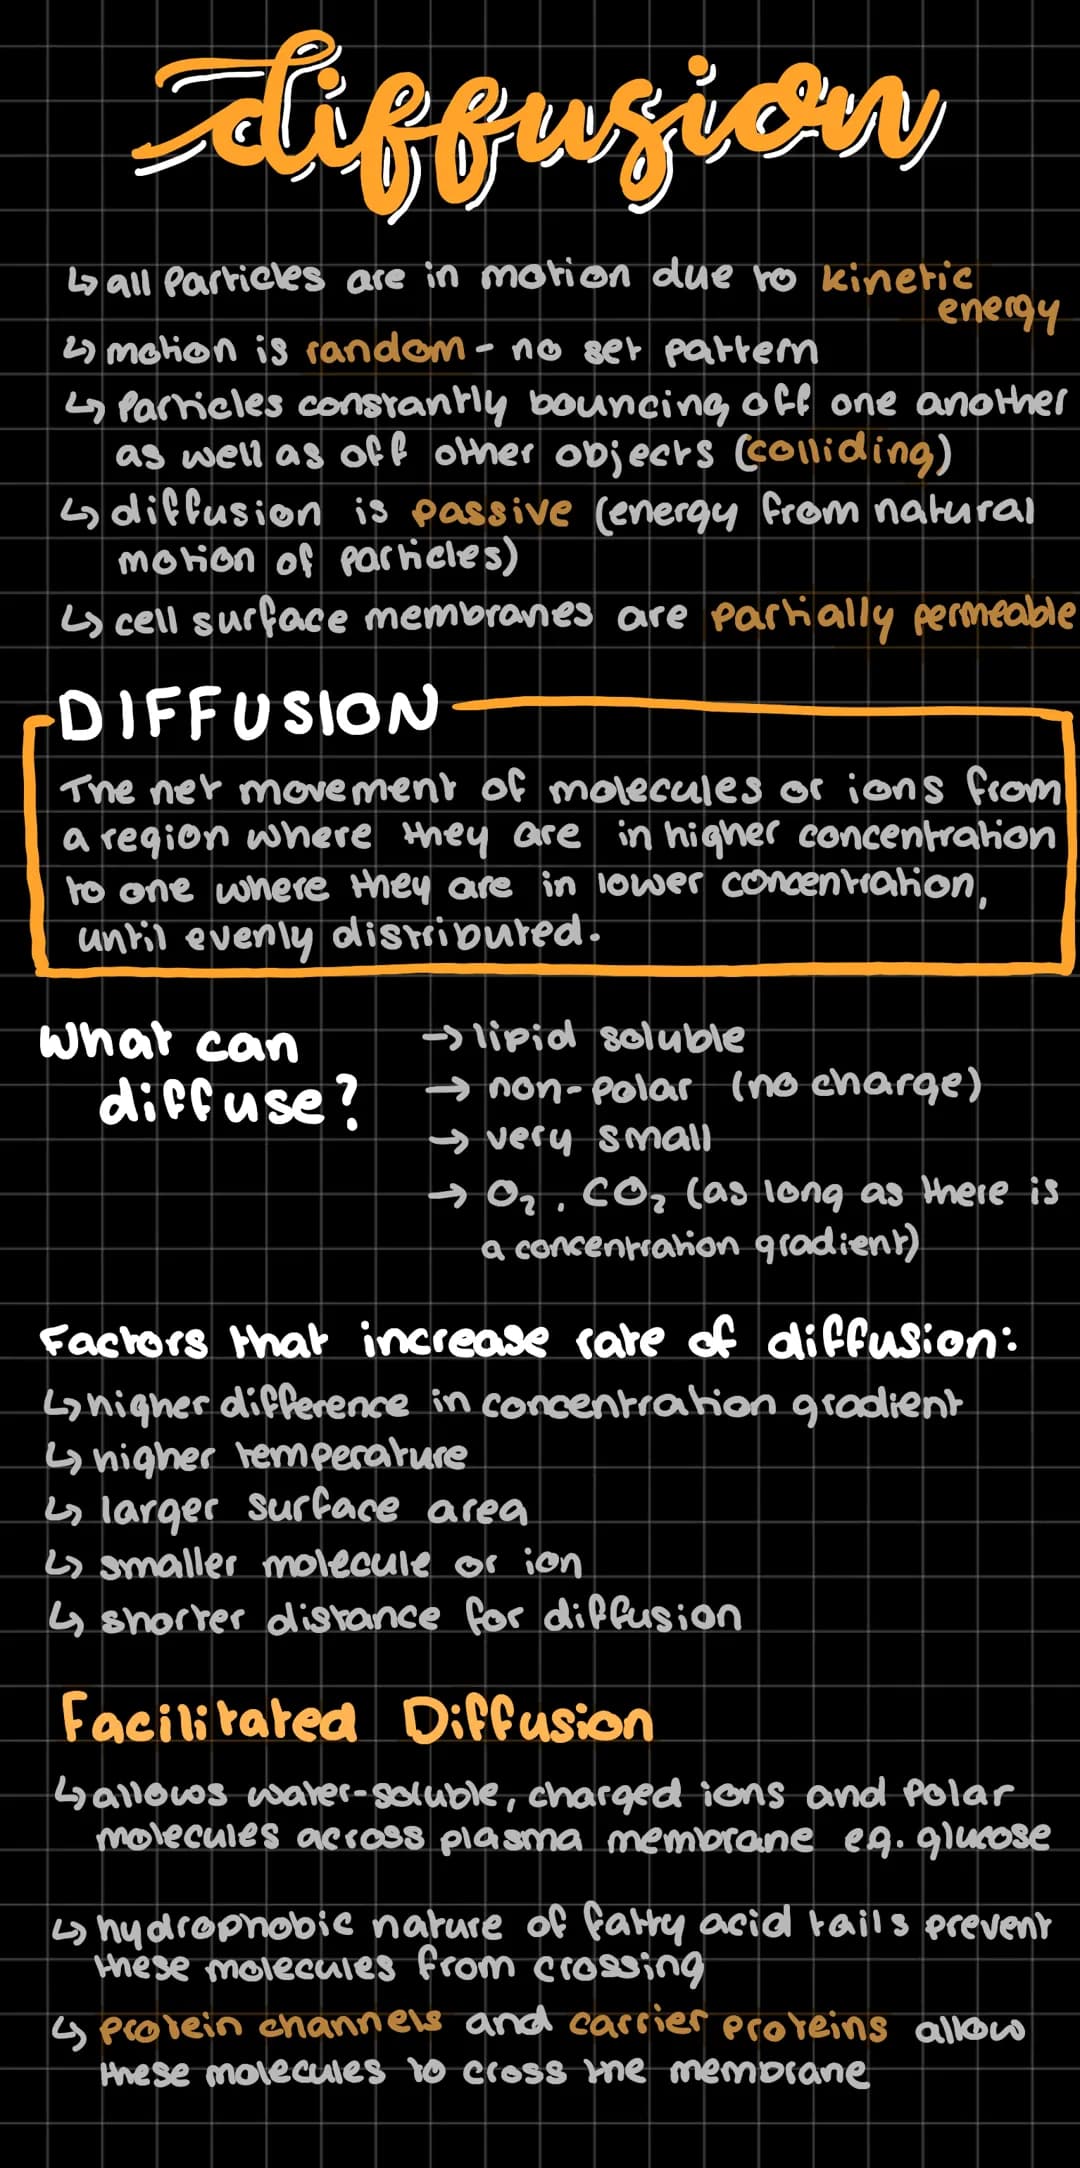 diffusion
↳ all particles are in motion due to kinetic
energy
↳ motion is random - no set pattern
↳ Particles constantly bouncing off one another
as well as off other objects (colliding)
↳ diffusion is passive (energy from natural
motion of particles)
↳ cell surface membranes are partially permeable
DIFFUSION
The net movement of molecules or ions from
a region where they are in higher concentration
to one where they are in lower concentration,
until evenly distributed.
What can
diffuse?
→ lipid soluble
→ non-polar (no charge)
→ very small
→ O₂, CO₂ (as long as there is
a concentration gradient)
Factors that increase rate of diffusion:
↳ higher difference in concentration gradient
↳ higher temperature
↳ larger surface area
↳ smaller molecule or ion
↳ shorter distance for diffusion
Facilitated Diffusion
↳ allows water-soluble, charged ions and polar
molecules across plasma membrane eg. glucose
↳ hydrophobic nature of fatty acid tails prevent
these molecules from crossing
↳ protein channels and carrier proteins allow
these molecules to cross the membrane